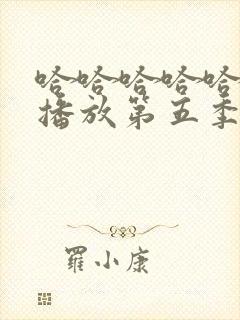 哈哈哈哈哈
播放第五季
羅小康